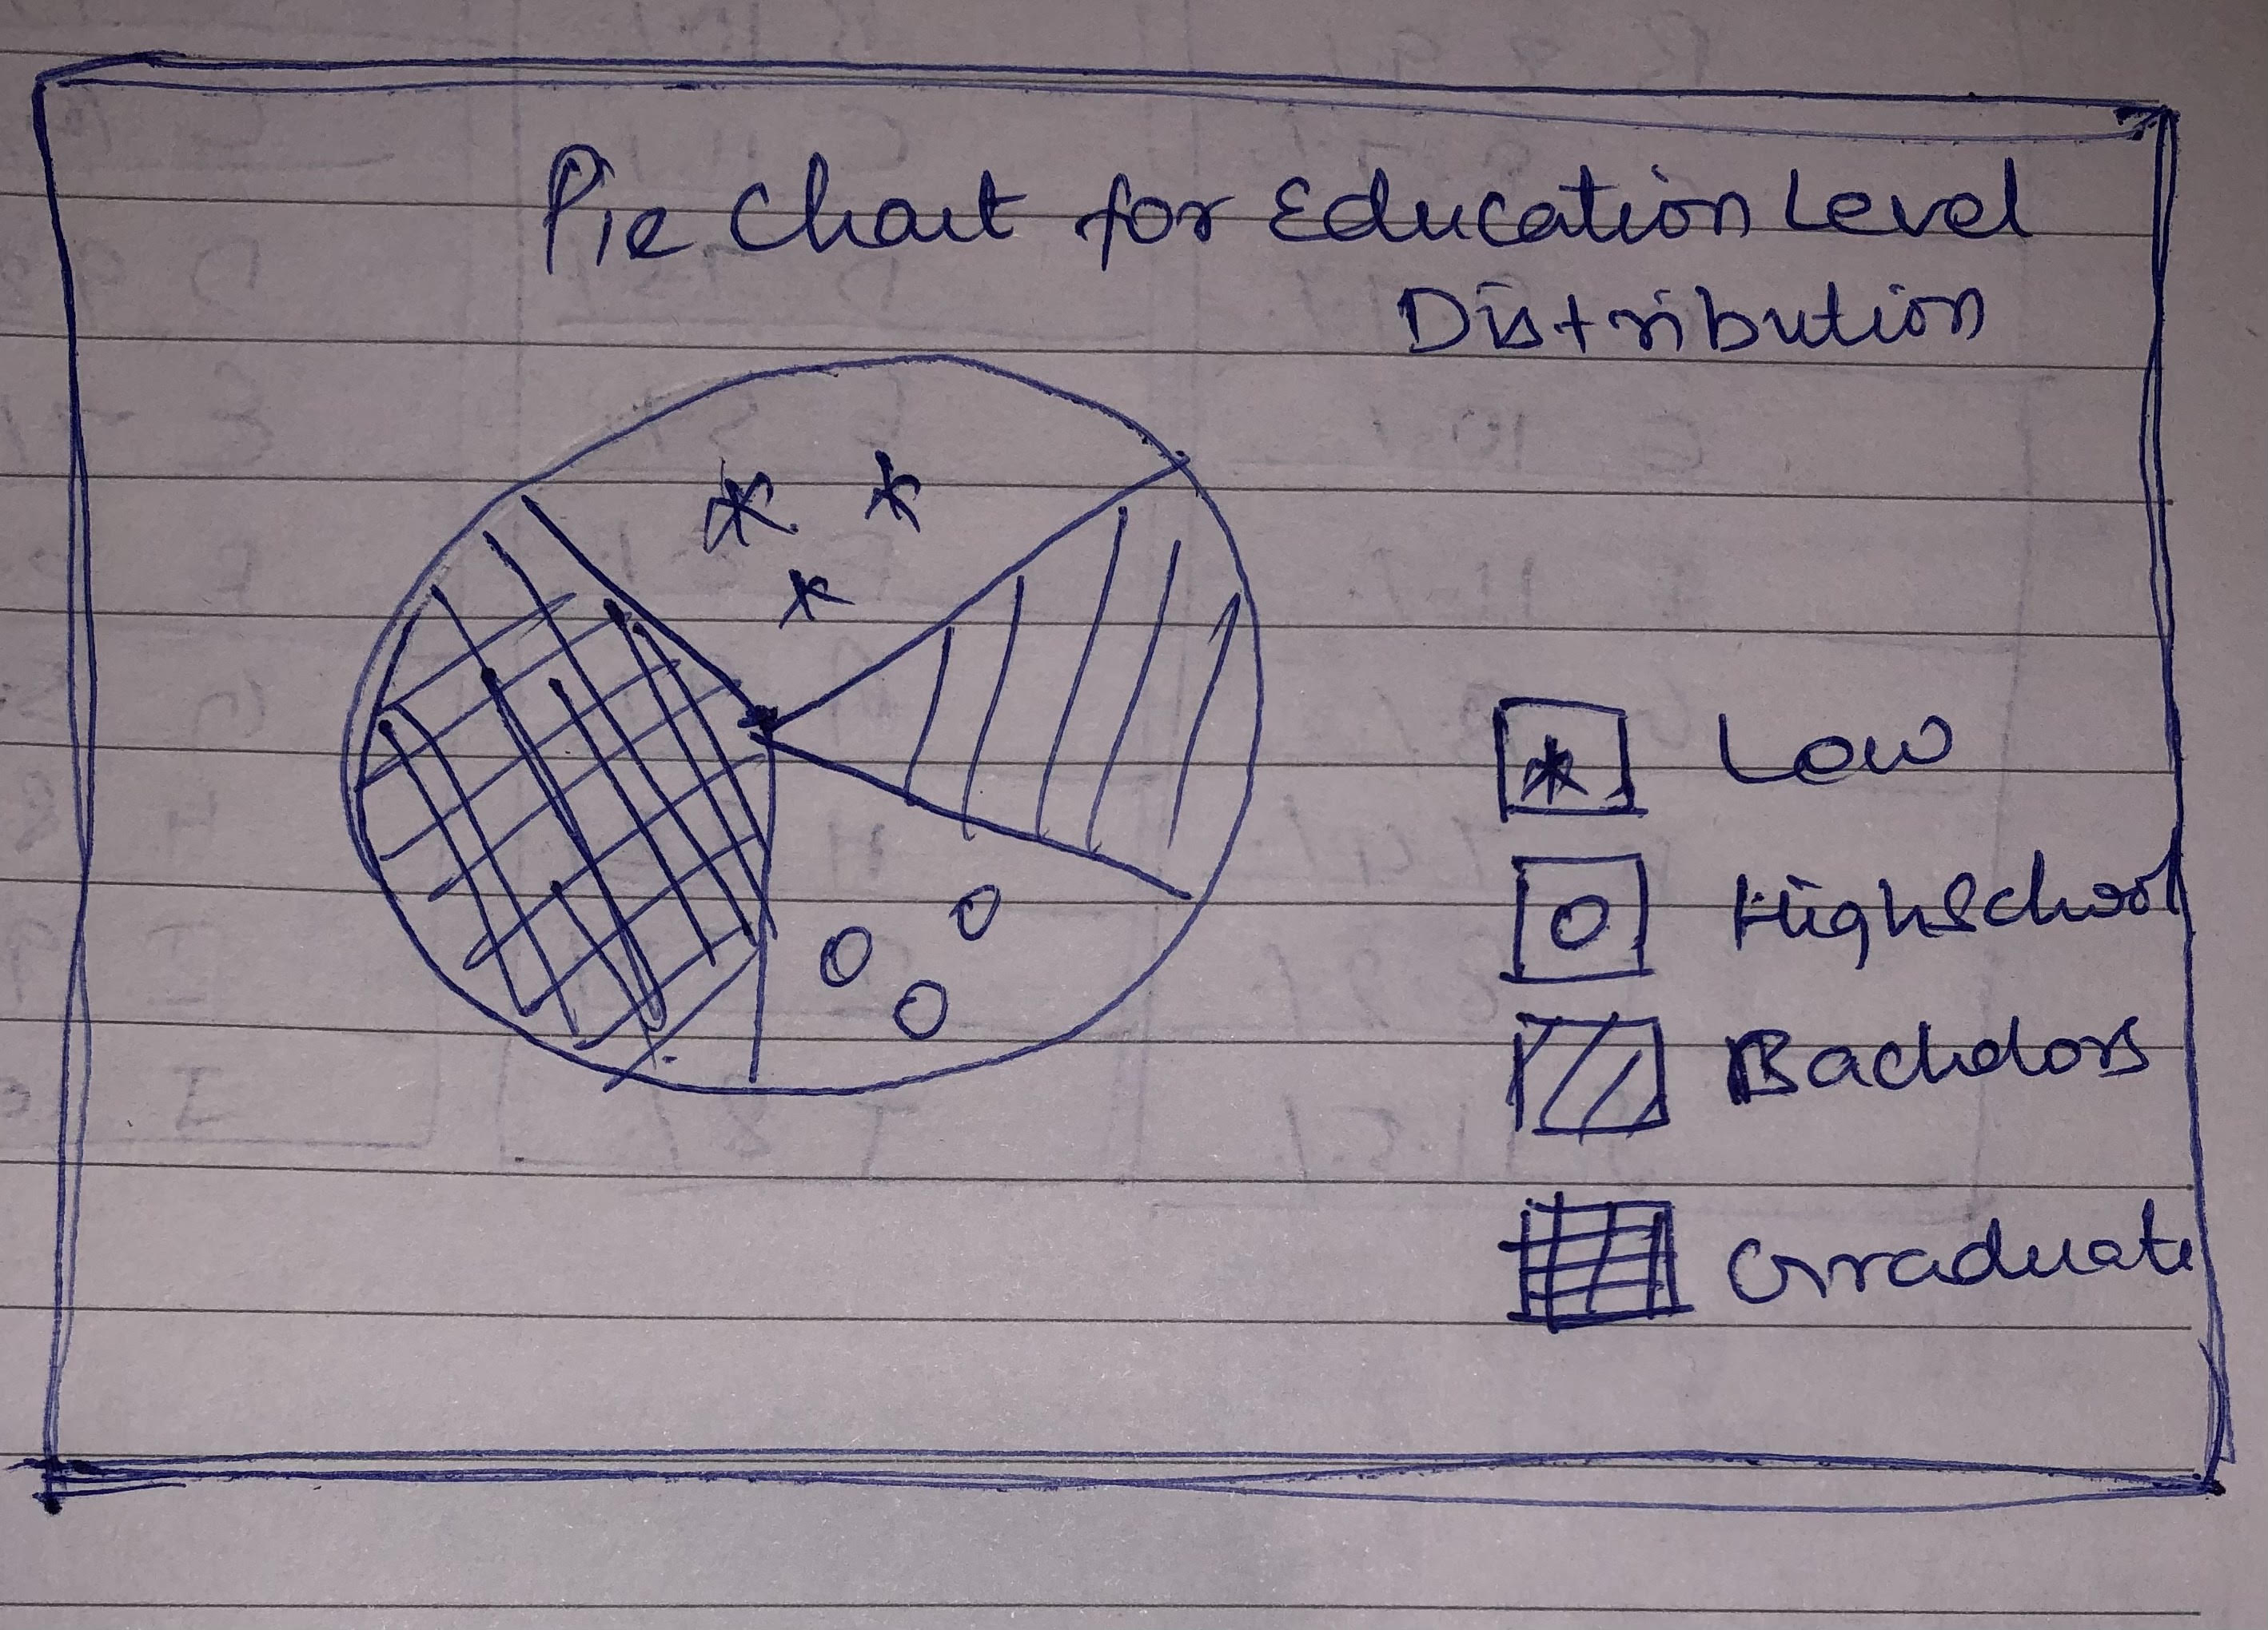 Pie Chart for Education Level
Distribution
Low
Highschool
Bachelors
Graduate